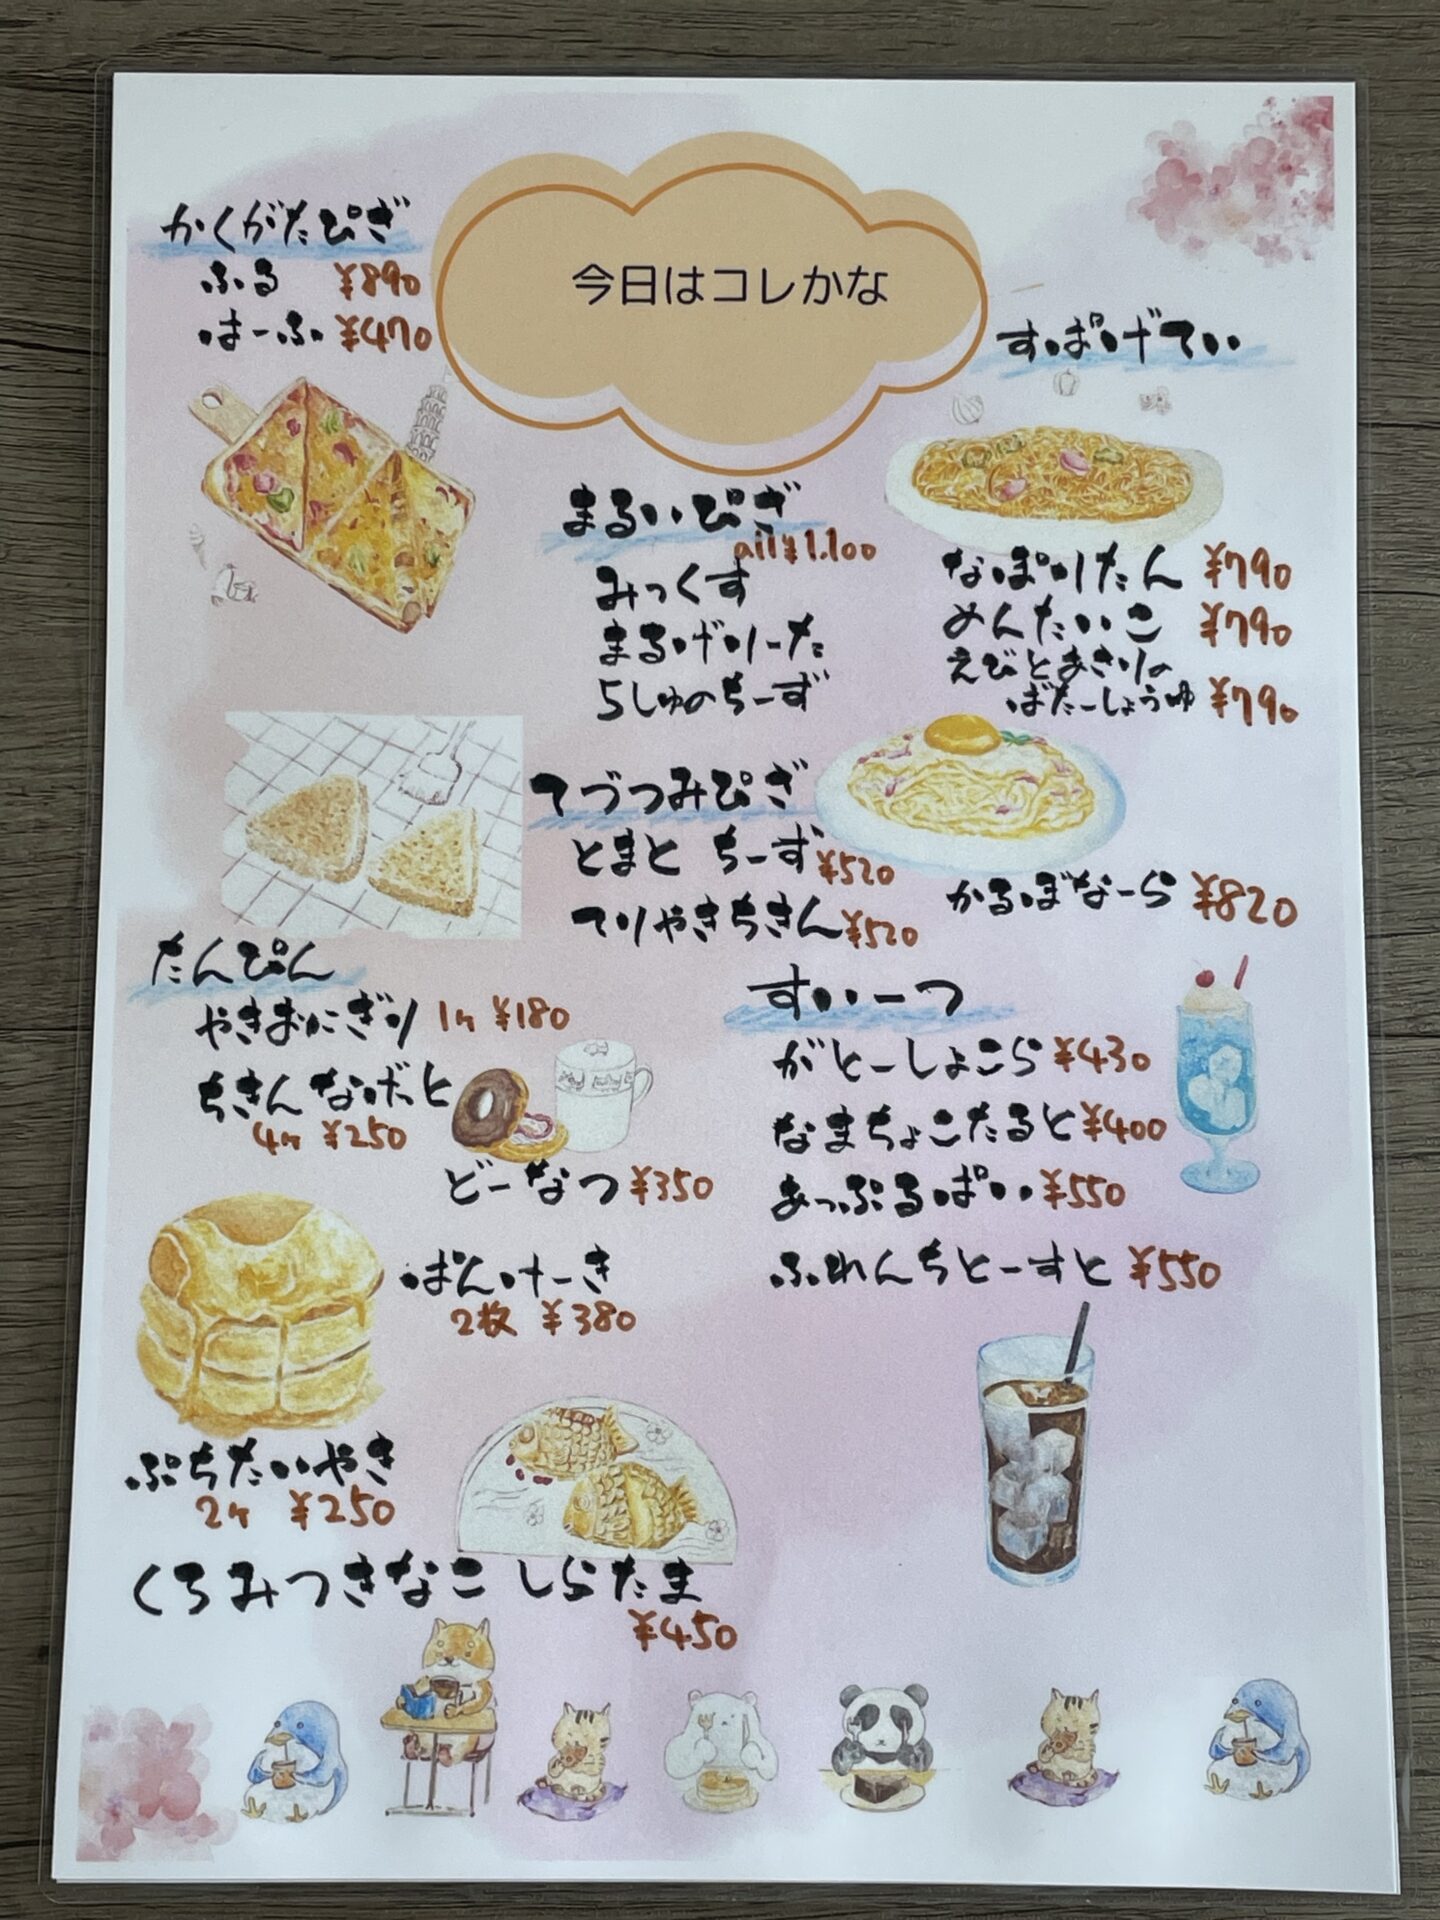 今日はコレかな
かくがたぴざ
ふる ¥890
はーふ ¥470
まるいぴざ
all¥1.100
みっくす
まるげりーた
5しゅのちーず
てづつみぴざ
とまと ちーず ¥520
てりやきちきん ¥520
すぱげてぃ
なぽりたん ¥790
めんたいこ ¥790
えびとあさりの
ばたーしょうゆ ¥790
かるぼなーら ¥820
たんぴん
やきおにぎり 1ヶ ¥180
ちきんなげっと
4ヶ ¥250
どーなつ ¥350
ぱんけーき
2枚 ¥380
ぷちたいやき
2ヶ ¥250
くろみつきなこ しらたま
¥450
すいーつ
がとーしょこら ¥430
なまちょこたると ¥400
あっぷるぱい ¥550
ふれんちとーすと ¥550